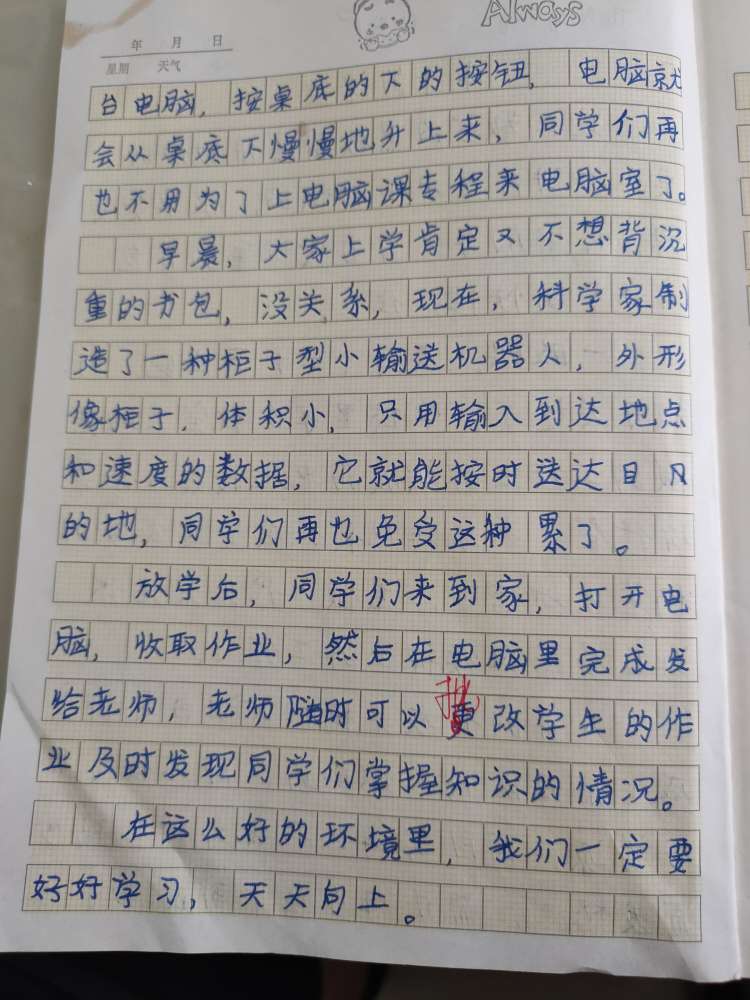 Always
年 月 日
星期 天气
台电脑，按桌底的下的按钮，电脑就
会从桌底下慢慢地升上来，同学们再
也不用为了上电脑课专程来电脑室了。
早晨，大家上学肯定又不想背沉
重的书包，没关系，现在，科学家制
造了一种柜子型小输送机器人，外形
像柜子，体积小，只用输入到达地点
和速度的数据，它就能按时送达目凡
的地，同学们再也免受这种累了。
放学后，同学们来到家，打开电
脑，收取作业，然后在电脑里完成发
给老师，老师随时可以更改学生的作
批
业及时发现同学们掌握知识的情况。
在这么好的环境里，我们一定要
好好学习，天天向上。